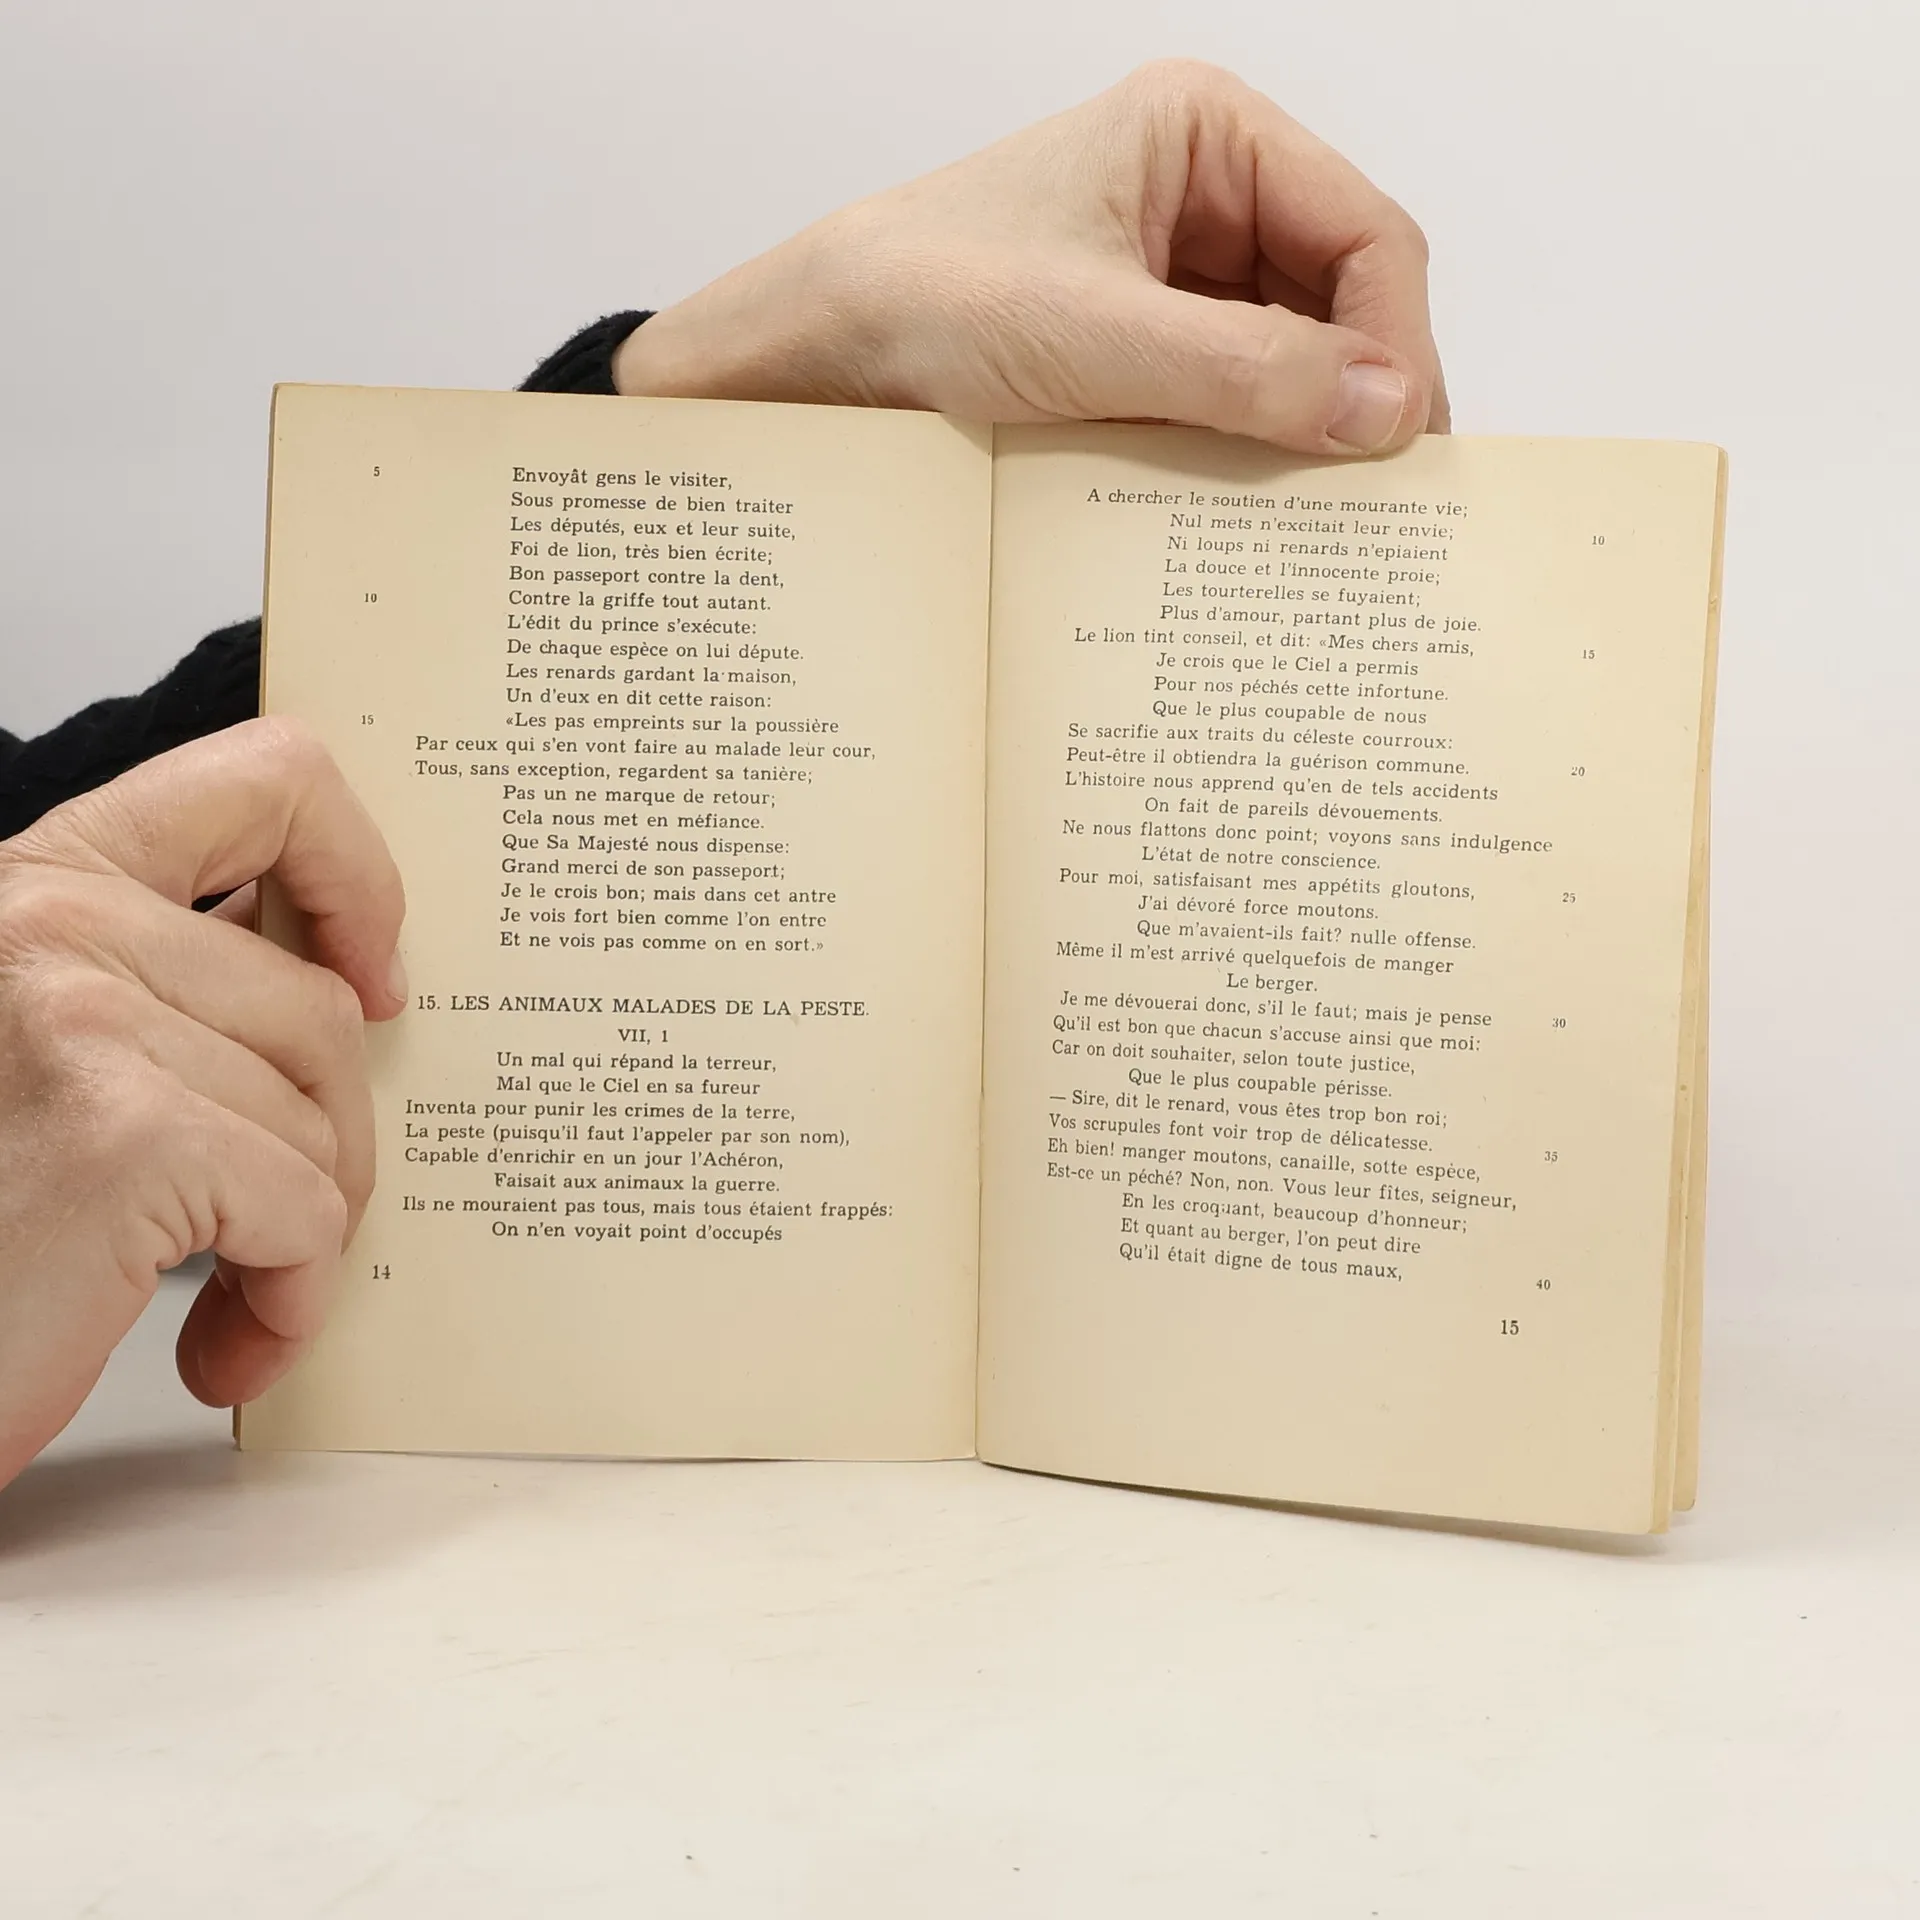 5 Envoyât gens le visiter,
Sous promesse de bien traiter
Les députés, eux et leur suite,
Foi de lion, très bien écrite;
Bon passeport contre la dent,
10 Contre la griffe tout autant.
L'édit du prince s'exécute:
De chaque espèce on lui députe.
Les renards gardant la maison,
Un d'eux en dit cette raison:
15 «Les pas empreints sur la poussière
Par ceux qui s'en vont faire au malade leur cour,
Tous, sans exception, regardent sa tanière;
Pas un ne marque de retour;
Cela nous met en méfiance.
Que Sa Majesté nous dispense:
Grand merci de son passeport;
Je le crois bon; mais dans cet antre
Je vois fort bien comme l'on entre
Et ne vois pas comme on en sort.»
15. LES ANIMAUX MALADES DE LA PESTE.
VII, 1
Un mal qui répand la terreur,
Mal que le Ciel en sa fureur
Inventa pour punir les crimes de la terre,
La peste (puisqu'il faut l'appeler par son nom),
Capable d'enrichir en un jour l'Achéron,
Faisait aux animaux la guerre.
Ils ne mouraient pas tous, mais tous étaient frappés:
On n'en voyait point d'occupés
14
A chercher le soutien d'une mourante vie;
Nul mets n'excitait leur envie; 10
Ni loups ni renards n'epiaient
La douce et l'innocente proie;
Les tourterelles se fuyaient;
Plus d'amour, partant plus de joie.
Le lion tint conseil, et dit: «Mes chers amis, 15
Je crois que le Ciel a permis
Pour nos péchés cette infortune.
Que le plus coupable de nous
Se sacrifie aux traits du céleste courroux:
Peut-être il obtiendra la guérison commune. 20
L'histoire nous apprend qu'en de tels accidents
On fait de pareils dévouements.
Ne nous flattons donc point; voyons sans indulgence
L'état de notre conscience.
Pour moi, satisfaisant mes appétits gloutons, 25
J'ai dévoré force moutons.
Que m'avaient-ils fait? nulle offense.
Même il m'est arrivé quelquefois de manger
Le berger.
Je me dévouerai donc, s'il le faut; mais je pense 30
Qu'il est bon que chacun s'accuse ainsi que moi:
Car on doit souhaiter, selon toute justice,
Que le plus coupable périsse.
— Sire, dit le renard, vous êtes trop bon roi;
Vos scrupules font voir trop de délicatesse. 35
Eh bien! manger moutons, canaille, sotte espèce,
Est-ce un péché? Non, non. Vous leur fîtes, seigneur,
En les croquant, beaucoup d'honneur;
Et quant au berger, l'on peut dire
Qu'il était digne de tous maux, 40
15